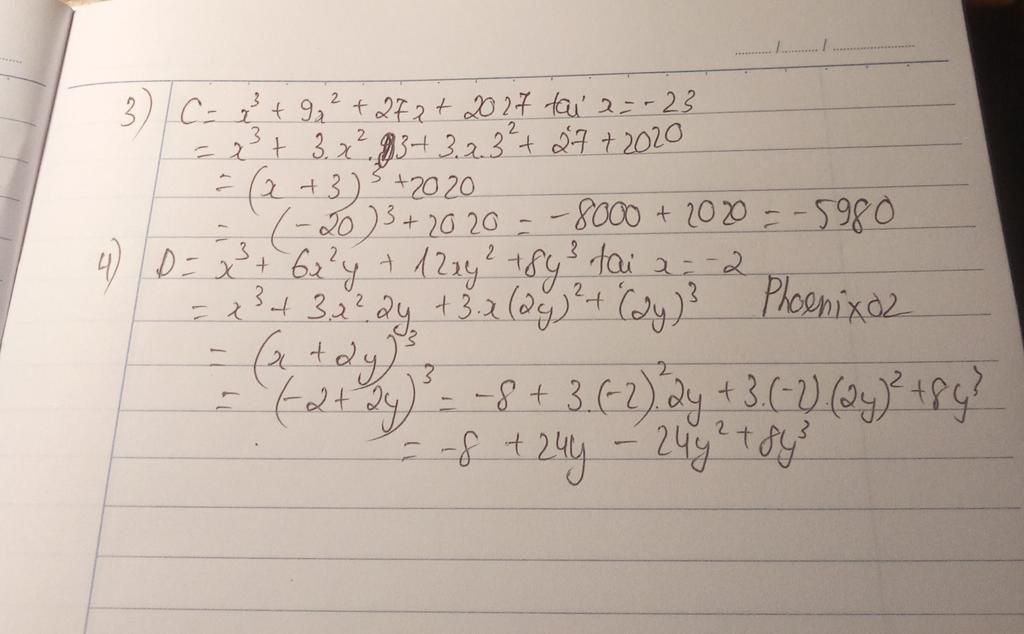 3) C = x³ + 9x² + 27x + 2027 tại x = -23
= x³ + 3.x².3 + 3.x.3² + 27 + 2020
= (x + 3)³ + 2020
= (-20)³ + 2020 = -8000 + 2020 = -5980
4) D = x³ + 6x²y + 12xy² + 8y³ tại x = -2
= x³ + 3.x².2y + 3.x(2y)² + (2y)³ Phoenix02
= (x + 2y)³
= (-2 + 2y)³ = -8 + 3.(-2)².2y + 3.(-2).(2y)² + 8y³
= -8 + 24y - 24y² + 8y³